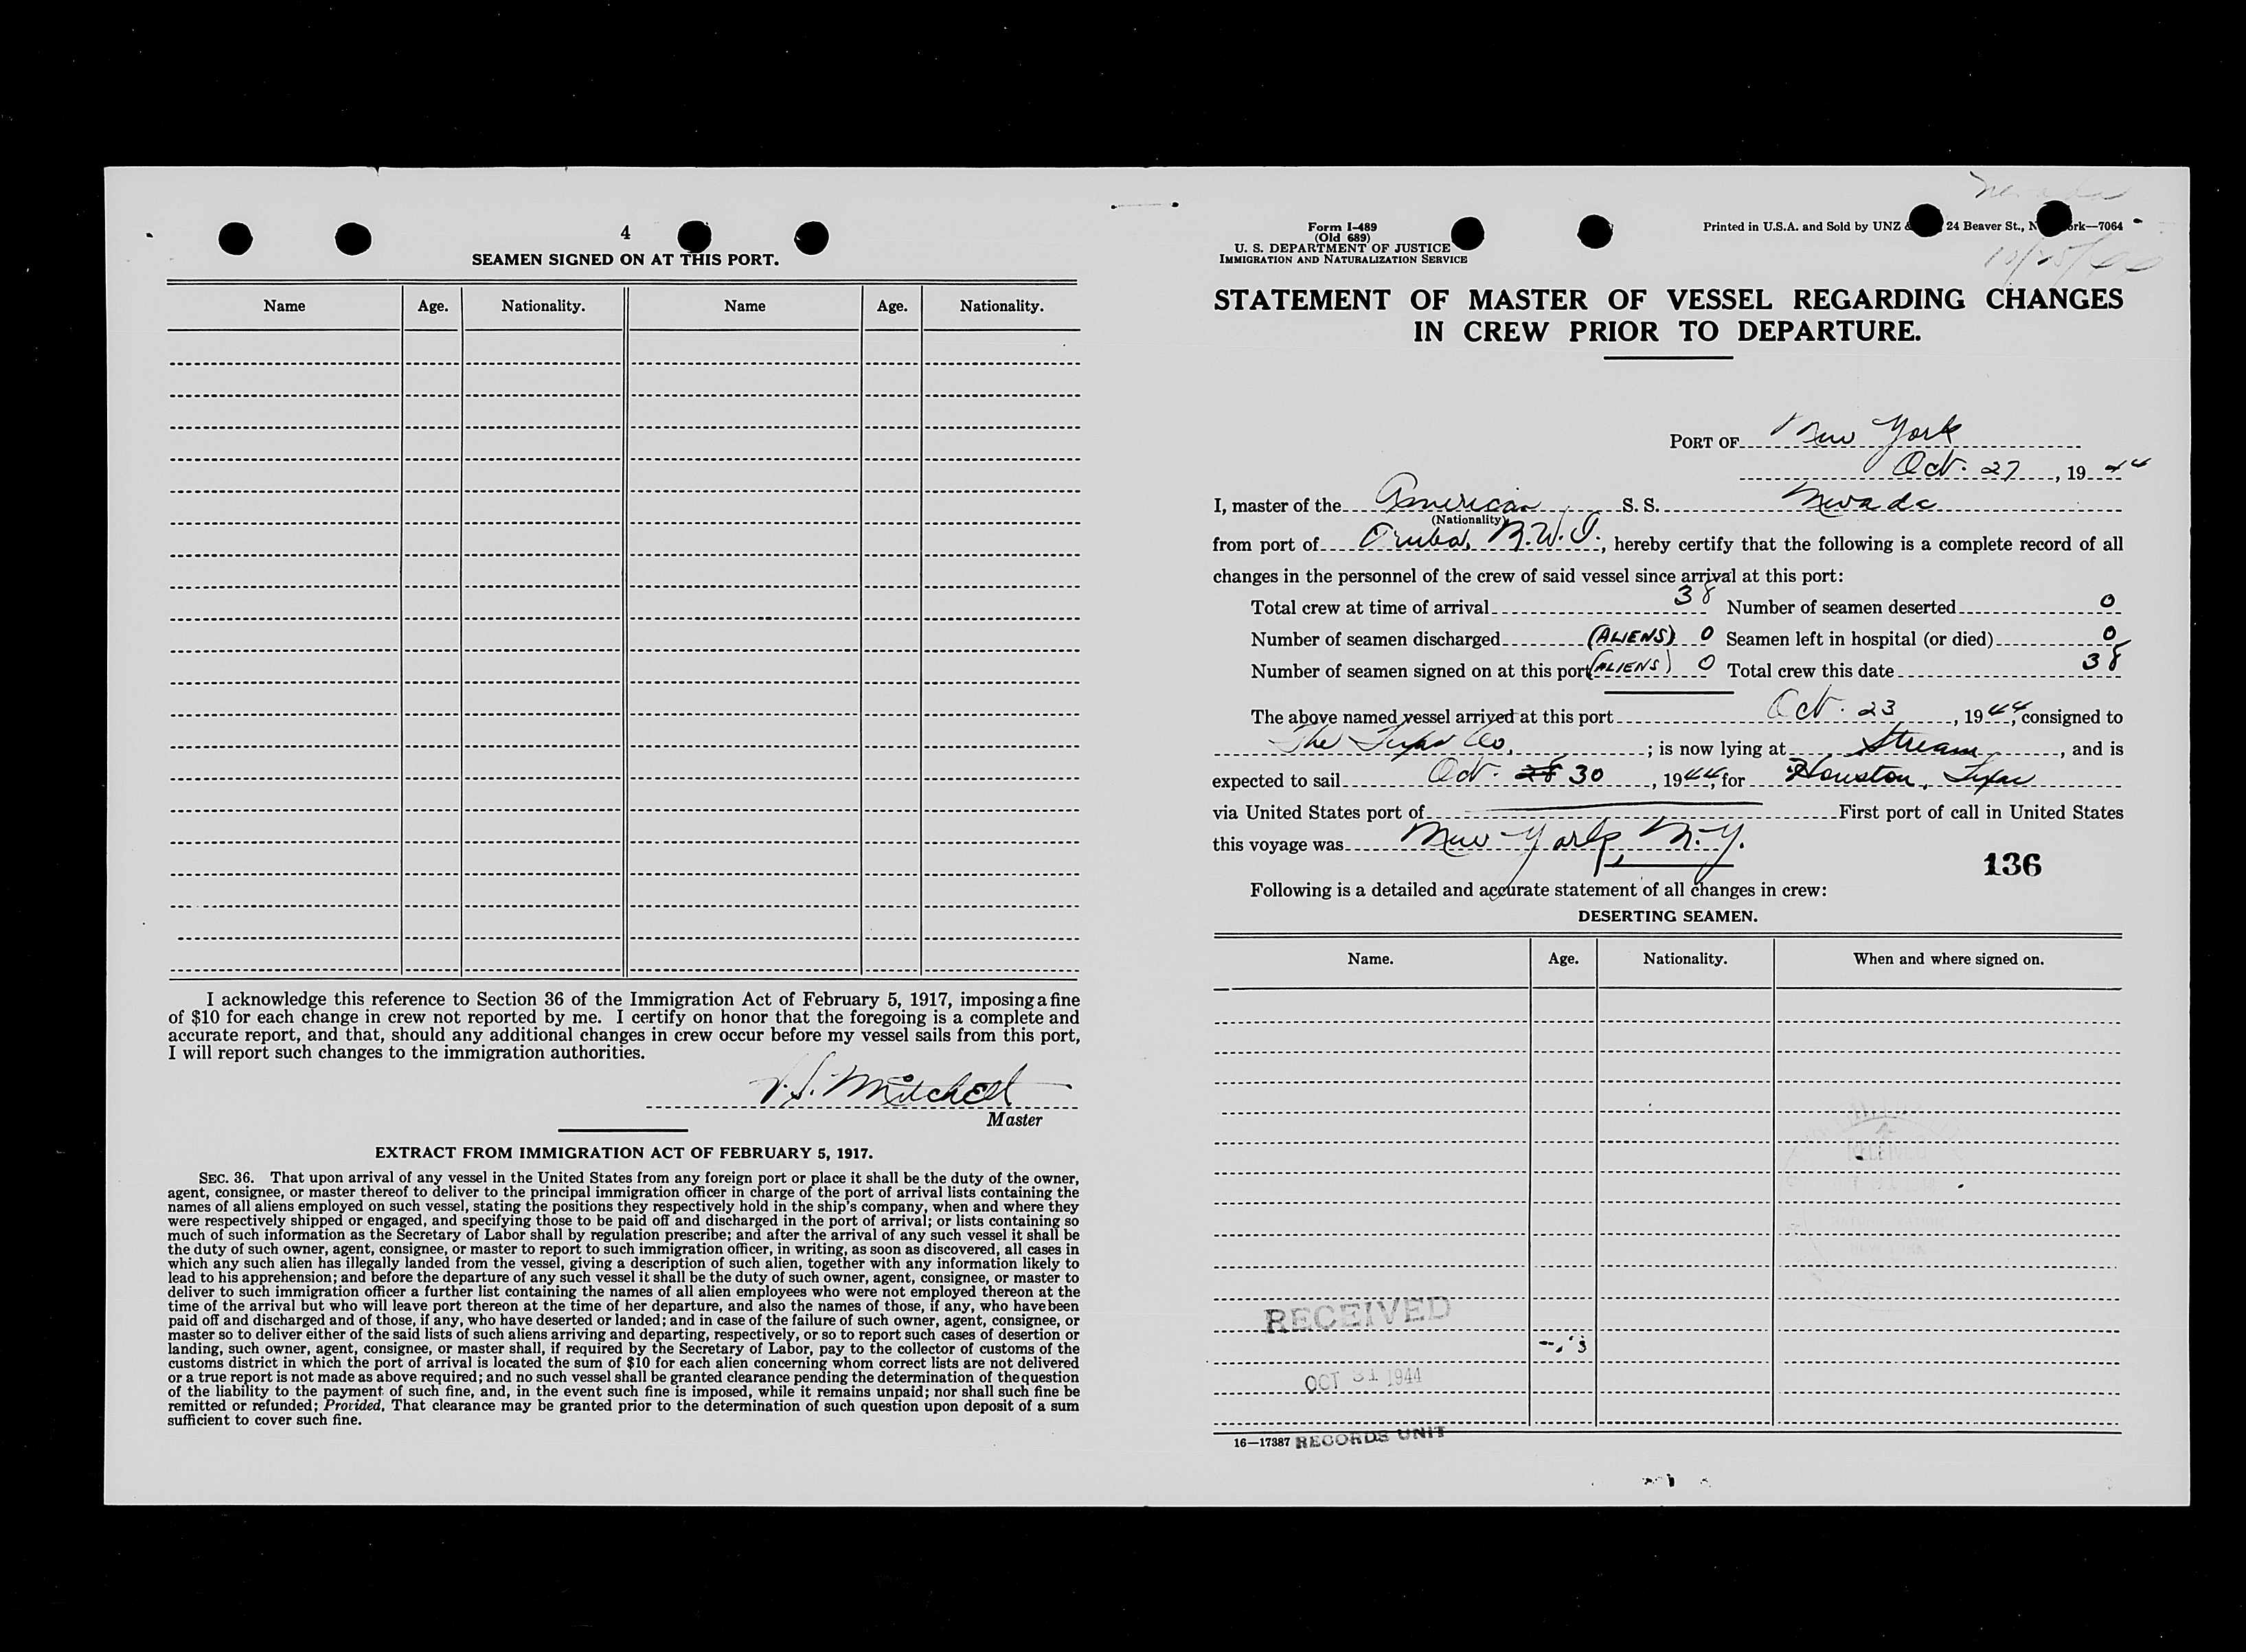 4
SEAMEN SIGNED ON AT THIS PORT.
Name Age. Nationality. Name Age. Nationality.
I acknowledge this reference to Section 36 of the Immigration Act of February 5, 1917, imposing a fine
of $10 for each change in crew not reported by me. I certify on honor that the foregoing is a complete and
accurate report, and that, should any additional changes in crew occur before my vessel sails from this port,
I will report such changes to the immigration authorities.
V. S. Mitchell
Master
EXTRACT FROM IMMIGRATION ACT OF FEBRUARY 5, 1917.
SEC. 36. That upon arrival of any vessel in the United States from any foreign port or place it shall be the duty of the owner,
agent, consignee, or master thereof to deliver to the principal immigration officer in charge of the port of arrival lists containing the
names of all aliens employed on such vessel, stating the positions they respectively hold in the ship's company, when and where they
were respectively shipped or engaged, and specifying those to be paid off and discharged in the port of arrival; or lists containing so
much of such information as the Secretary of Labor shall by regulation prescribe; and after the arrival of any such vessel it shall be
the duty of such owner, agent, consignee, or master to report to such immigration officer, in writing, as soon as discovered, all cases in
which any such alien has illegally landed from the vessel, giving a description of such alien, together with any information likely to
lead to his apprehension; and before the departure of any such vessel it shall be the duty of such owner, agent, consignee, or master to
deliver to such immigration officer a further list containing the names of all alien employees who were not employed thereon at the
time of the arrival but who will leave port thereon at the time of her departure, and also the names of those, if any, who have been
paid off and discharged and of those, if any, who have deserted or landed; and in case of the failure of such owner, agent, consignee, or
master so to deliver either of the said lists of such aliens arriving and departing, respectively, or so to report such cases of desertion or
landing, such owner, agent, consignee, or master shall, if required by the Secretary of Labor, pay to the collector of customs of the
customs district in which the port of arrival is located the sum of $10 for each alien concerning whom correct lists are not delivered
or a true report is not made as above required; and no such vessel shall be granted clearance pending the determination of the question
of the liability to the payment of such fine, and, in the event such fine is imposed, while it remains unpaid; nor shall such fine be
remitted or refunded; Provided, That clearance may be granted prior to the determination of such question upon deposit of a sum
sufficient to cover such fine.
Nevada
Form I-489
(Old 689)
U. S. DEPARTMENT OF JUSTICE
IMMIGRATION AND NATURALIZATION SERVICE
Printed in U.S.A. and Sold by UNZ & 24 Beaver St., N ork—7064
STATEMENT OF MASTER OF VESSEL REGARDING CHANGES
IN CREW PRIOR TO DEPARTURE.
PORT OF New York
Oct. 27, 1944
I, master of the American S. S. Nevada
(Nationality)
from port of Aruba, N.W.I., hereby certify that the following is a complete record of all
changes in the personnel of the crew of said vessel since arrival at this port:
Total crew at time of arrival 38 Number of seamen deserted 0
Number of seamen discharged (ALIENS) 0 Seamen left in hospital (or died) 0
Number of seamen signed on at this port (ALIENS) 0 Total crew this date 38
The above named vessel arrived at this port Oct. 23, 1944, consigned to
The Texas Co.; is now lying at Stream, and is
expected to sail Oct. 28 30, 1944, for Houston, Texas
via United States port of First port of call in United States
this voyage was New York, N.Y.
136
Following is a detailed and accurate statement of all changes in crew:
DESERTING SEAMEN.
Name. Age. Nationality. When and where signed on.
RECEIVED
OCT 31 1944
16—17387 RECORDS UNIT